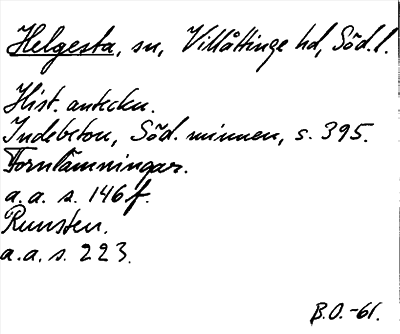 Helgesta, sn, Villåttinge hd, Söd.l.
Hist. anteckn.
Indebetou, Söd. minnen, s. 395.
Fornlämningar.
a.a. s. 146 f.
Runsten.
a.a. s. 223.
B.O.-61.